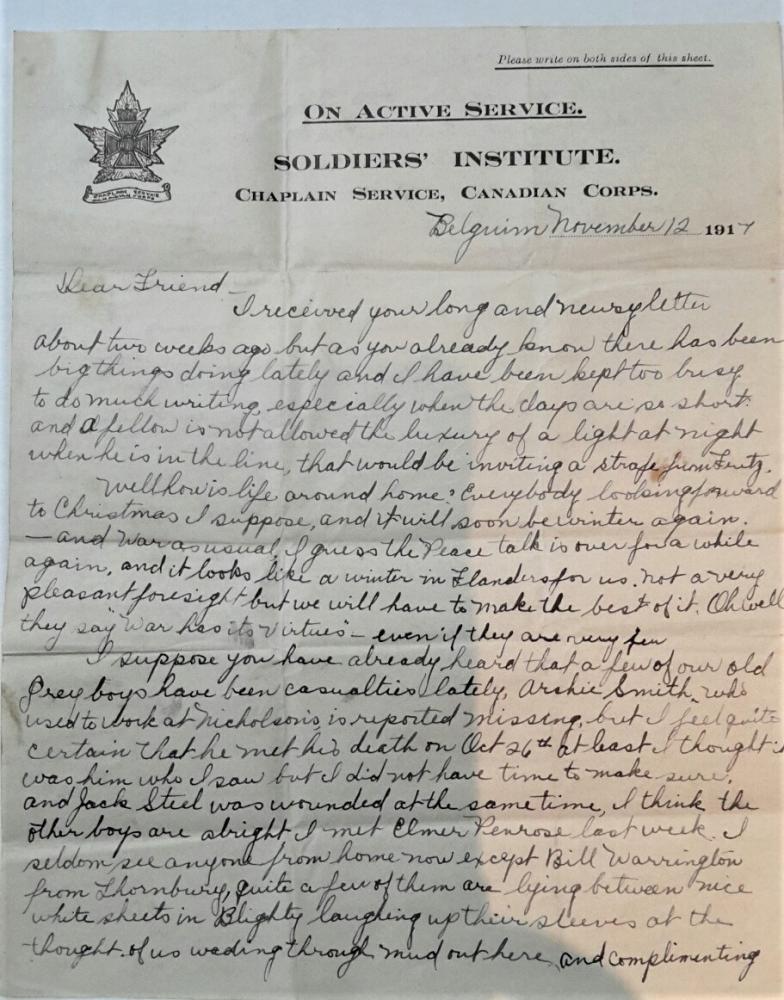 Please write on both sides of this sheet.
ON ACTIVE SERVICE.
SOLDIERS' INSTITUTE.
CHAPLAIN SERVICE, CANADIAN CORPS.
CHAPLAIN SERVICE
Belguim November 12 1917
Dear Friend -
I received your long and newsy letter
about two weeks ago but as you already know there has been
big things doing lately and I have been kept too busy
to do much writing, especially when the days are so short.
and a fellow is not allowed the luxury of a light at night
when he is in the line, that would be inviting a strafe from Fritz.
Well how is life around home? Everybody looking forward
to Christmas I suppose, and it will soon be winter again.
- and War as usual, I guess the Peace talk is over for a while
again, and it looks like a winter in Flanders for us. not a very
pleasant foresight but we will have to make the best of it. Oh well
they say "War has its virtues" - even if they are very few
I suppose you have already heard that a few of our old
Grey boys have been casualties lately, Archie Smith, who
used to work at Nicholson's is reported missing, but I feel quite
certain that he met his death on Oct 26th at least I thought i
was him who I saw but I did not have time to make sure.
and Jack Steel was wounded at the same time, I think the
other boys are alright I met Elmer Penrose last week. I
seldom see anyone from home now except Bill Warrington
from Thornbury, quite a few of them are lying between nice
white sheets in Blighty laughing up their sleeves at the
thought of us wading through mud out here, and complimenting